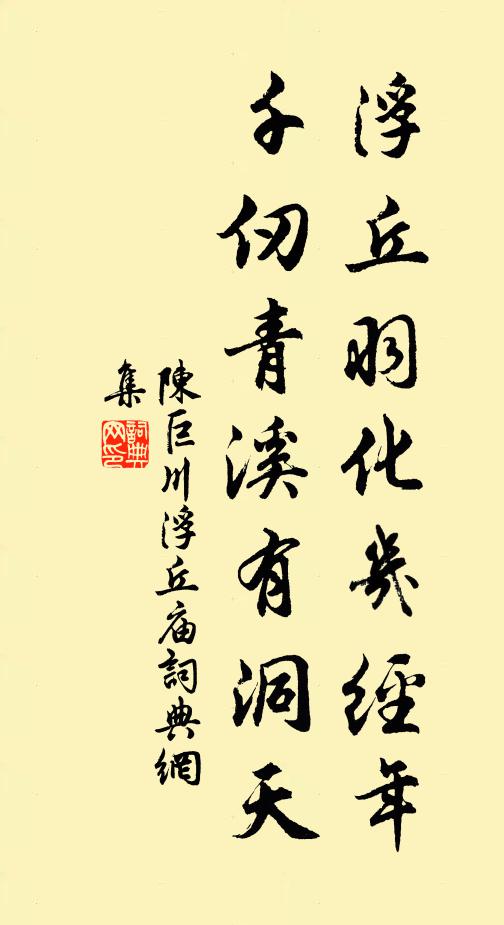 浮丘羽化几經年
千仞青溪有洞天
陳巨川浮丘庙詞典網
集
詞典
网印